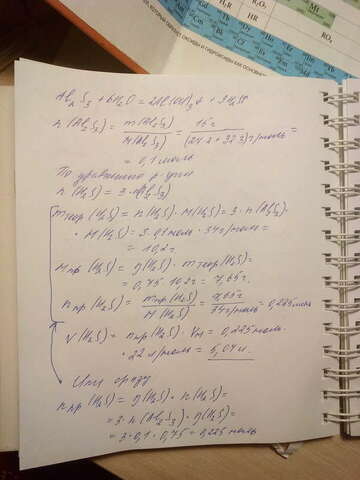 который образует оксиды и гидроксиды как основн
H₂R
HR
RO₄
Mt
Al₂S₃ + 6H₂O = 2Al(OH)₃↓ + 3H₂S↑
n(Al₂S₃) = m(Al₂S₃)/M(Al₂S₃) = 15г/(27·2+32·3)г/моль =
= 0,1 моль
По уравнению р-ции
n(H₂S) = 3·n(Al₂S₃)
mтеор(H₂S) = n(H₂S)·M(H₂S) = 3·n(Al₂S₃)·
·M(H₂S) = 3·0,1моль·34г/моль =
= 10,2г
mпр(H₂S) = η(H₂S)·mтеор(H₂S) =
= 0,75·10,2г = 7,65г.
nпр(H₂S) = mпр(H₂S)/M(H₂S) = 7,65г/34г/моль = 0,225моль
V(H₂S) = nпр(H₂S)·Vм = 0,225моль·
·22,4л/моль = 5,04л.
Или сразу
nпр(H₂S) = η(H₂S)·n(H₂S) =
= 3·n(Al₂S₃)·η(H₂S) =
= 3·0,1·0,75 = 0,225 моль